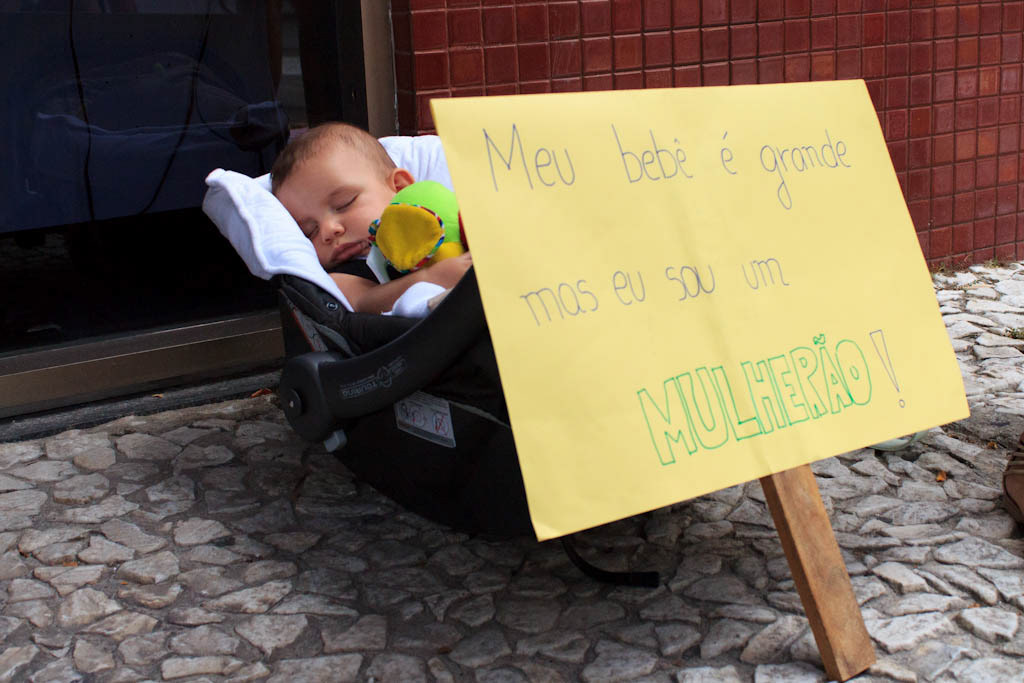 Meu bebê é grande
mas eu sou um
MULHERÃO!